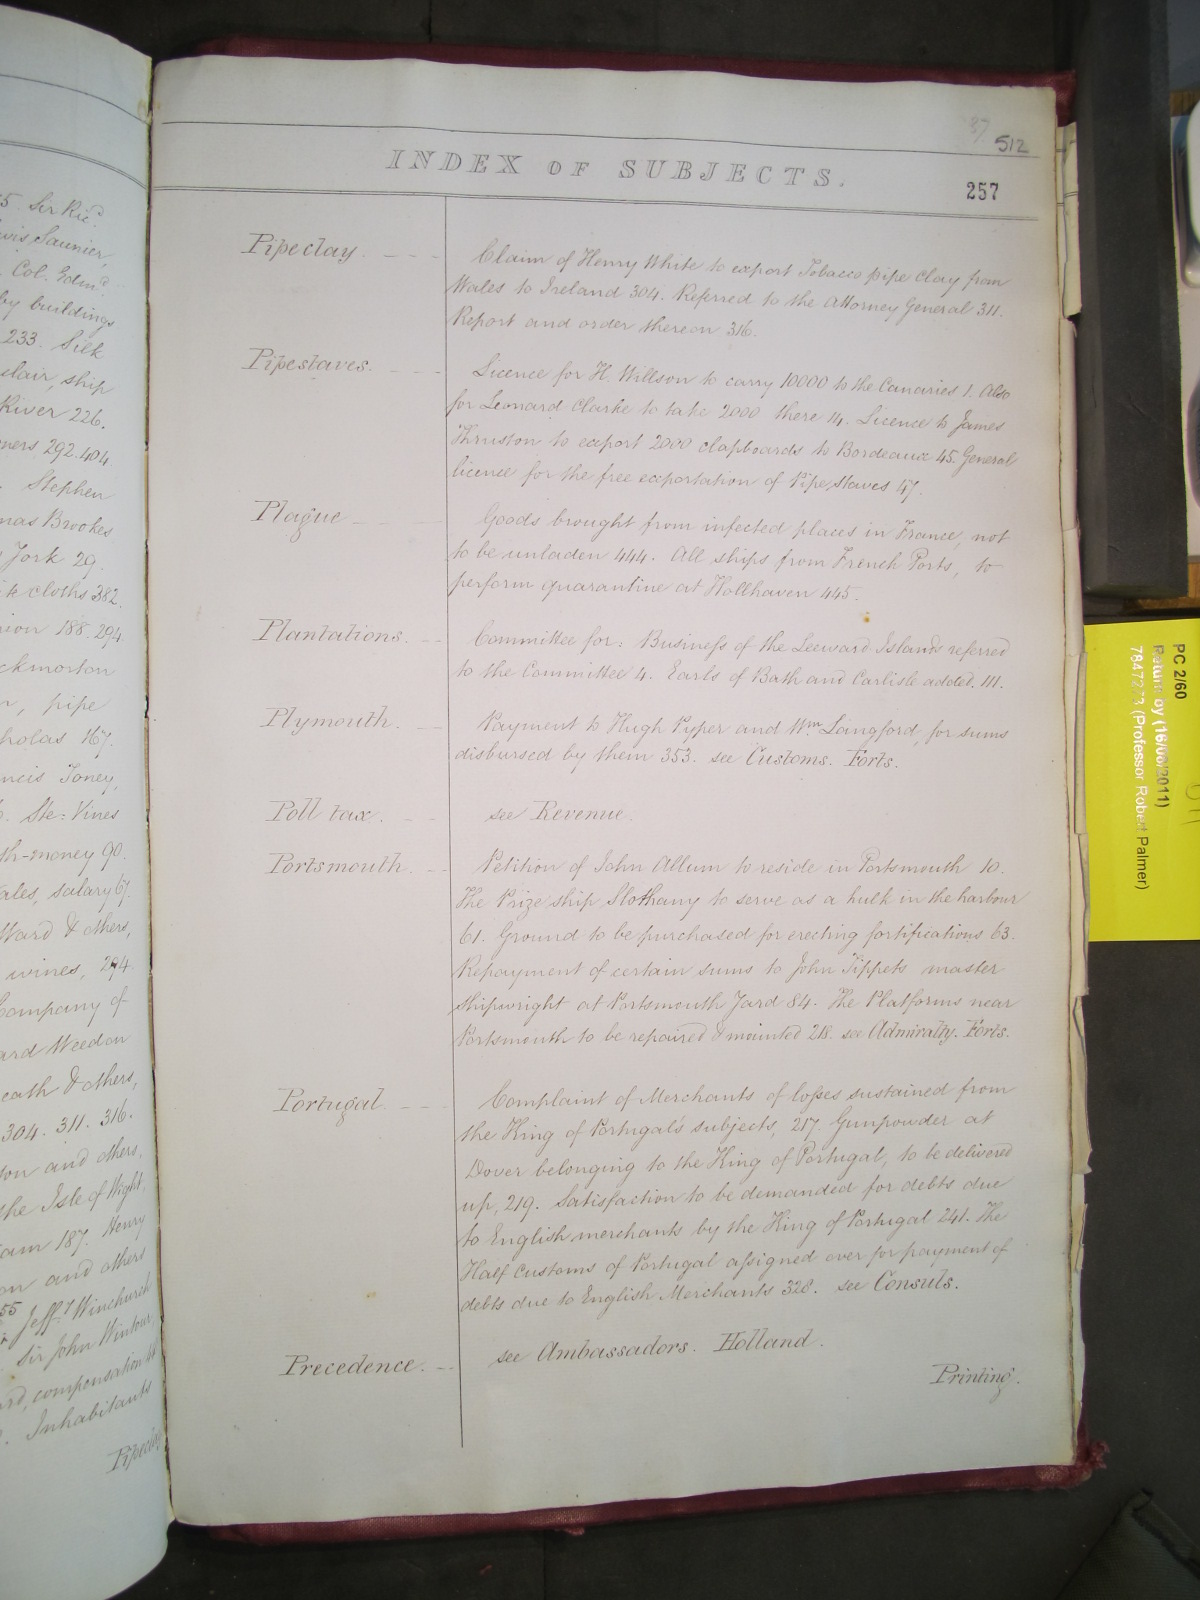 5. Sir Ric.d
Saunier,
Col. Edm.d
by buildings
233. Silk
ship
River 226.
292. 404
Stephen
Brookes
York 29.
cloths 382.
188. 294.
pipe
167.
Toney,
Vines
money 90.
salary 67.
Ward & others,
wines, 294.
Company of
Weedon
& others,
304. 311. 316.
and others,
the Isle of Wight,
187. Henry
and others
55
Jeff.y Winchurch
Sir John Wintour,
compensation to
Inhabitants
Pipeclay
37 512
INDEX OF SUBJECTS.
257
Pipeclay. - - - Claim of Henry White to export Tobacco pipe Clay from
Wales to Ireland 304. Referred to the Attorney General 311.
Report and order thereon 316.
Pipestaves. - - - Licence for H. Willson to carry 10000 to the Canaries 1. Also
for Leonard Clarke to take 2000 there 14. Licence to James
Thruston to export 2000 clapboards to Bordeaux 45. General
licence for the free exportation of Pipe Staves 47.
Plague - - - Goods brought from infected places in France, not
to be unladen 444. All ships from French Ports, to
perform quarantine at Hollhaven 445.
Plantations. - - Committee for: Business of the Leeward Islands referred
to the Committee 4. Earls of Bath and Carlisle added. 111.
Plymouth. - Payment to Hugh Pyper and Wm Langford, for sums
disbursed by them 353. see Customs. Forts.
Poll tax. - - see Revenue.
Portsmouth. - Petition of John Allum to reside in Portsmouth 10.
The Prize ship Slothany to serve as a hulk in the harbour
61. Ground to be purchased for erecting fortifications 63.
Repayment of certain sums to John Tippets master
shipwright at Portsmouth Yard 84. The Platforms near
Portsmouth to be repaired & mounted 218. see Admiralty. Forts.
Portugal. - - - Complaint of Merchants of losses sustained from
the King of Portugal's subjects, 217. Gunpowder at
Dover belonging to the King of Portugal, to be delivered
up, 219. Satisfaction to be demanded for debts due
to English merchants by the King of Portugal 241. The
Half Customs of Portugal assigned over for payment of
debts due to English Merchants 328. see Consuls.
Precedence. - - see Ambassadors. Holland.
Printing.
PC 2/60
Return by (16/08/2011)
7847273 (Professor Robert Palmer)